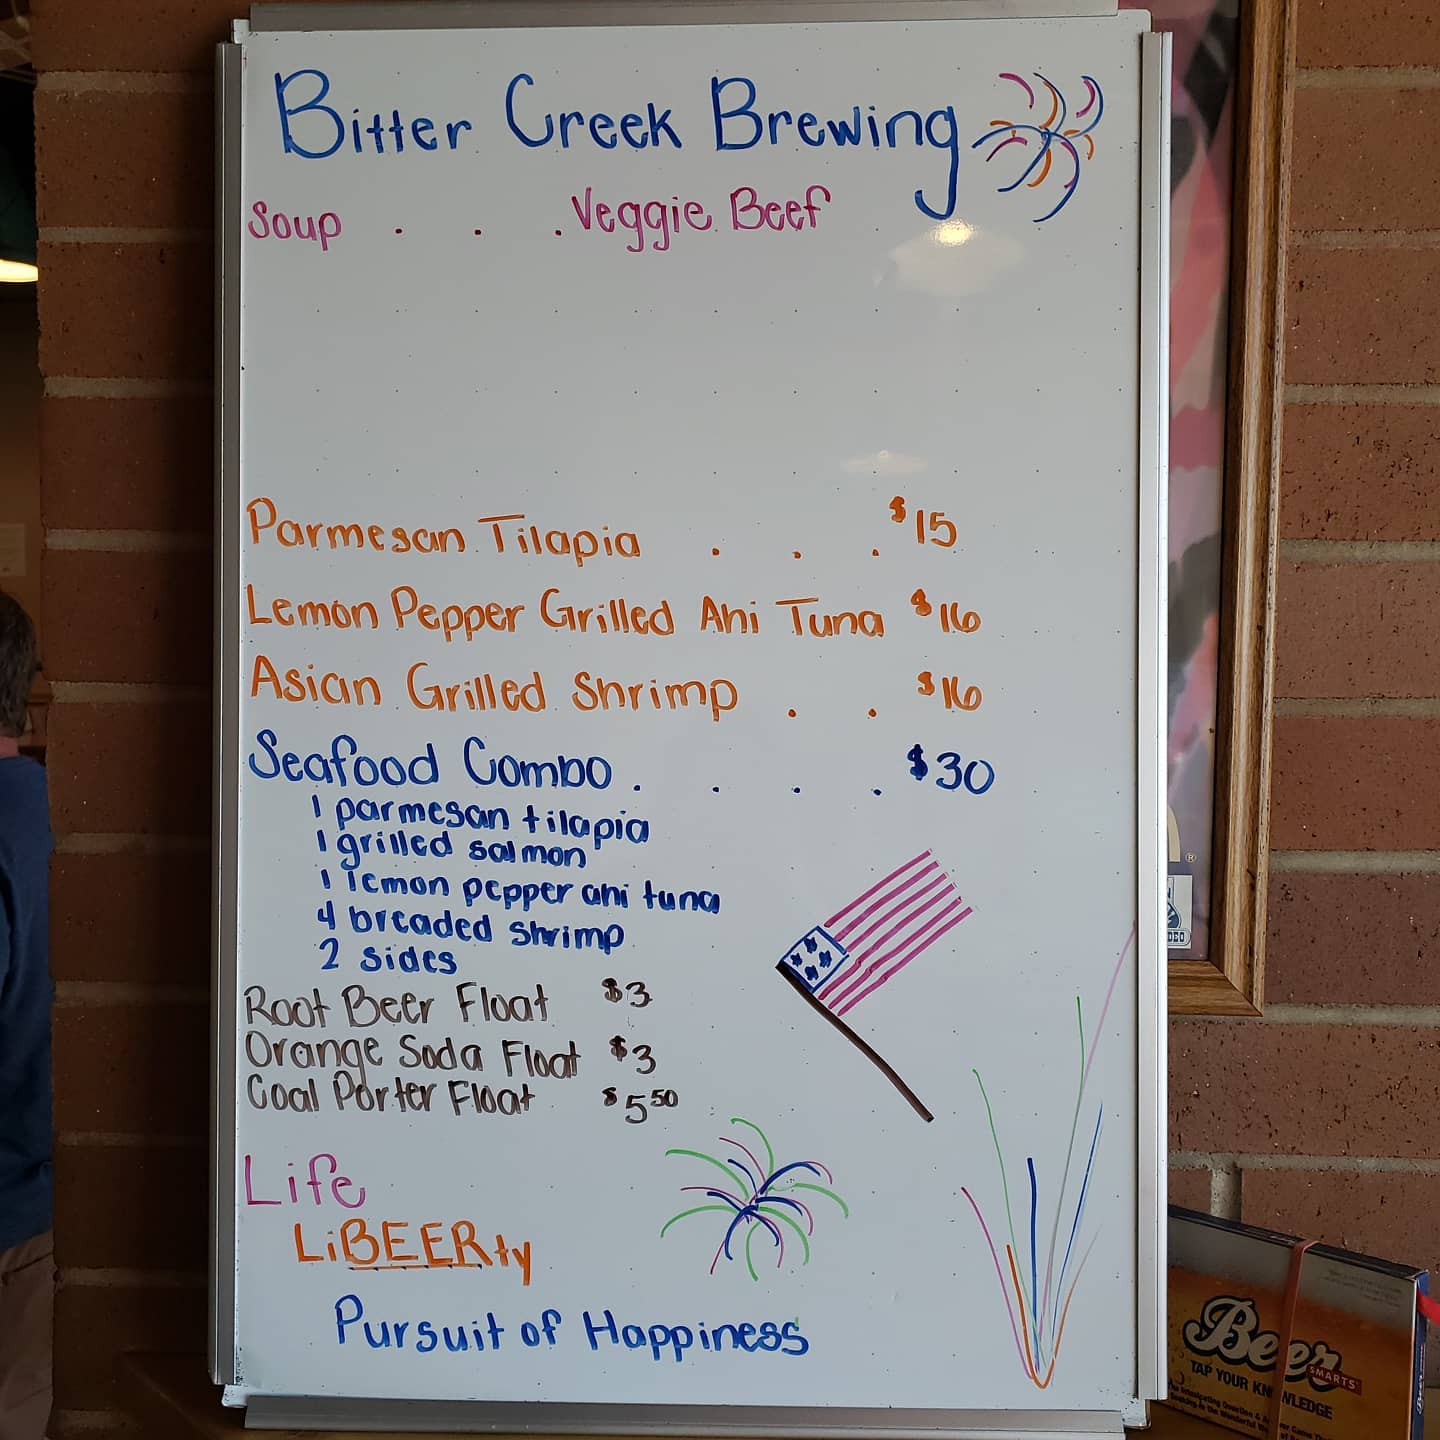 Bitter Creek Brewing
Soup . . . Veggie Beef
Parmesan Tilapia . . . $15
Lemon Pepper Grilled Ahi Tuna $16
Asian Grilled Shrimp . . $16
Seafood Combo . . . . $30
1 parmesan tilapia
1 grilled salmon
1 lemon pepper ahi tuna
4 breaded shrimp
2 sides
Root Beer Float $3
Orange Soda Float $3
Coal Porter Float $5 50
Life
LiBEERty
Pursuit of Happiness
®
Beer
SMARTS
TAP YOUR KNOWLEDGE